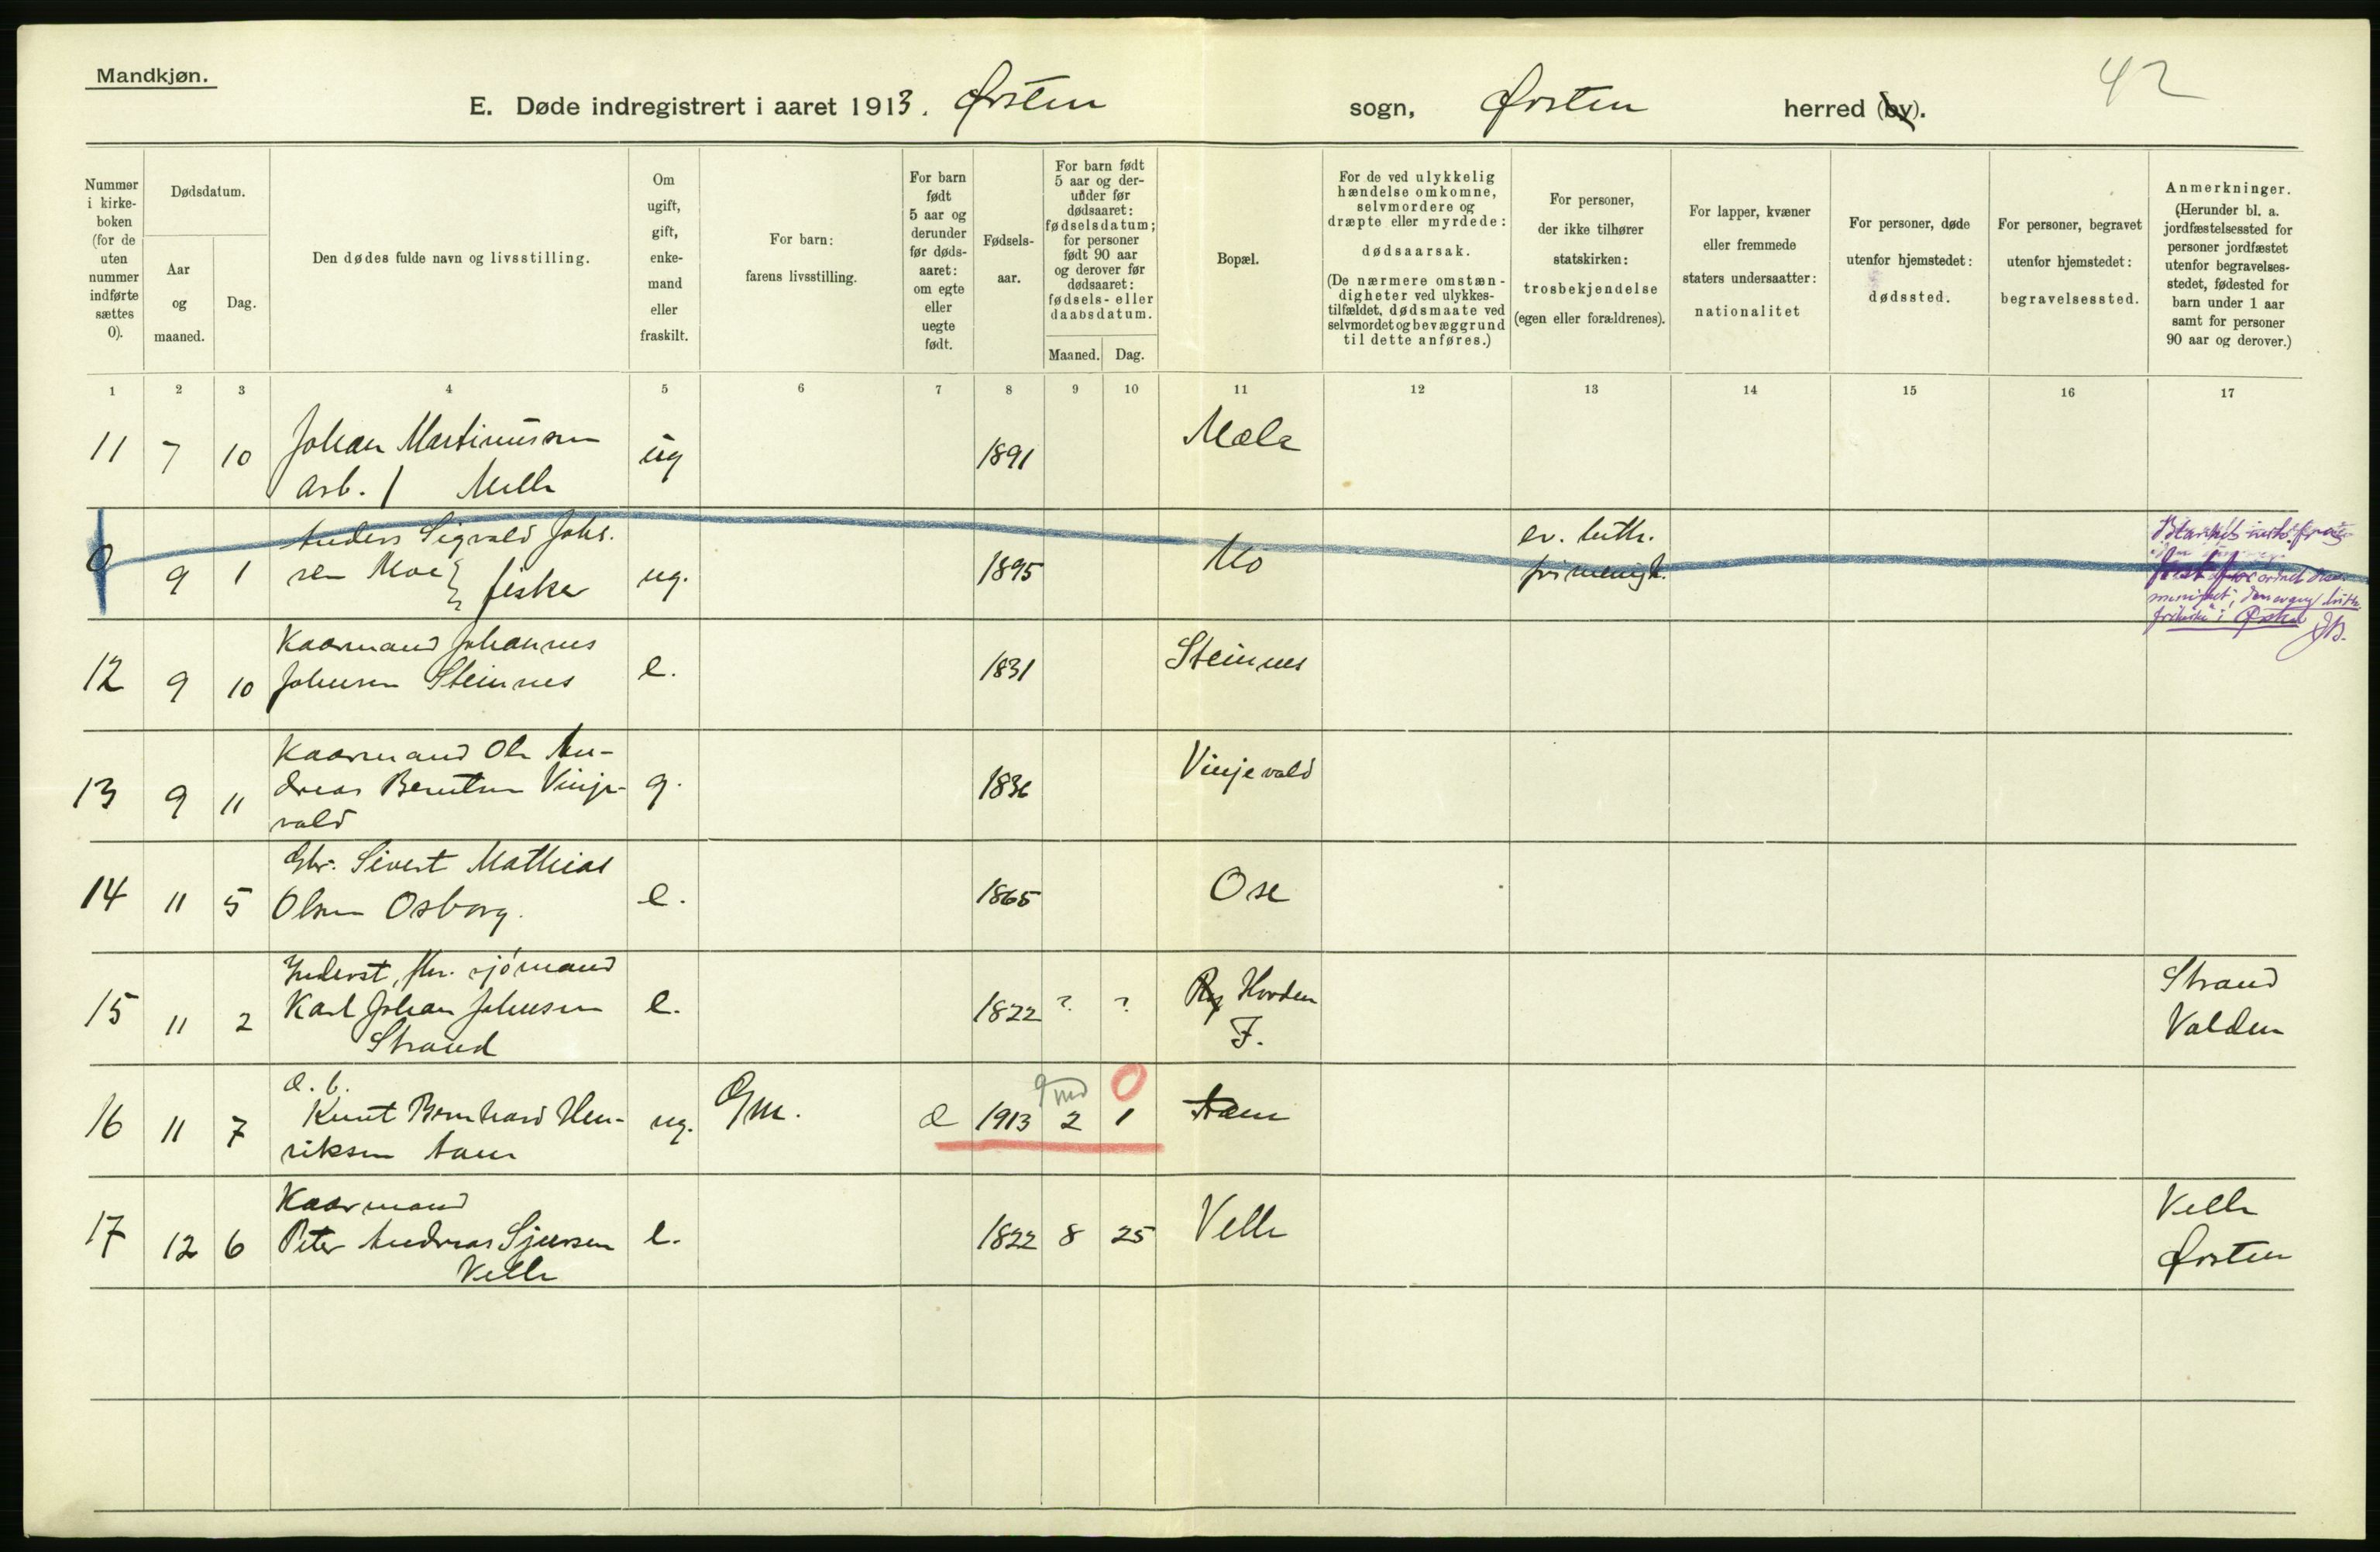 Mandkjøn.
42
E. Døde indregistrert i aaret 1913. Ørsten sogn, Ørsten herred (by).
Nummer i kirke-boken (for de uten nummer indførte sættes 0).
Dødsdatum.
Aar og maaned.
Dag.
Den dødes fulde navn og livsstilling.
Om ugift, gift, enke-mand eller fraskilt.
For barn: farens livsstilling.
For barn født 5 aar og derunder før døds-aaret: om egte eller uegte født.
Fødsels-aar.
For barn født 5 aar og der-under før dødsaaret: fødselsdatum; for personer født 90 aar og derover før dødsaaret: fødsels- eller daabsdatum.
Maaned.
Dag.
Bopæl.
For de ved ulykkelig hændelse omkomne, selvmordere og dræpte eller myrdede: dødsaarsak. (De nærmere omstæn-digheter ved ulykkes-tilfældet, dødsmaate ved selvmordet og bevæggrund til dette anføres.)
For personer, der ikke tilhører statskirken: trosbekjendelse (egen eller forældrenes).
For lapper, kvæner eller fremmede staters undersaatter: nationalitet
For personer, døde utenfor hjemstedet: dødssted.
For personer, begravet utenfor hjemstedet: begravelsessted.
Anmerkninger. (Herunder bl. a. jordfæstelsessted for personer jordfæstet utenfor begravelses-stedet, fødested for barn under 1 aar samt for personer 90 aar og derover.)
1 2 3 4 5 6 7 8 9 10 11 12 13 14 15 16 17
11 7 10 Johan Martinussen ug 1891 Mæle
arb. / Melle
0 9 1 Anders Sigvald Johs. ug. 1895 Mo ev. luth.
sen Moe } fisker frimenigh.
12 9 10 Kaarmand Johannes e. 1831 Steinnes
Johnsen Steinnes
13 9 11 Kaarmand Ole An- g. 1836 Vinjevold
dreas Berntsen Vinje-
vold
14 11 5 Gbr. Sivert Mathias e. 1865 Ose
Olsen Osborg.
15 11 2 Inderst, fhv. sjømand e. 1822 ? ? Hovden Strand
Karl Johan Johnsen F. Volden
Strand
16 11 7 d. b. ug. G/m. e 1913 9 md 2 1 0 Aam
Knut Bernhard Hen-
riksen Aam
17 12 6 Kaarmand e. 1822 8 25 Velle Velle
Peter Andreas Sjursen Ørsten
Velle